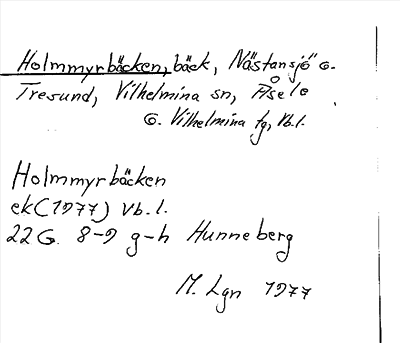 Holmmyrbäcken, bäck, Nästansjö o.
Tresund, Vilhelmina sn, Åsele
o. Vilhelmina tg, Vb.l.
Holmmyrbäcken
ek (1977) Vb.l.
22G 8-9 g-h Hunneberg
M. Lgn 1977